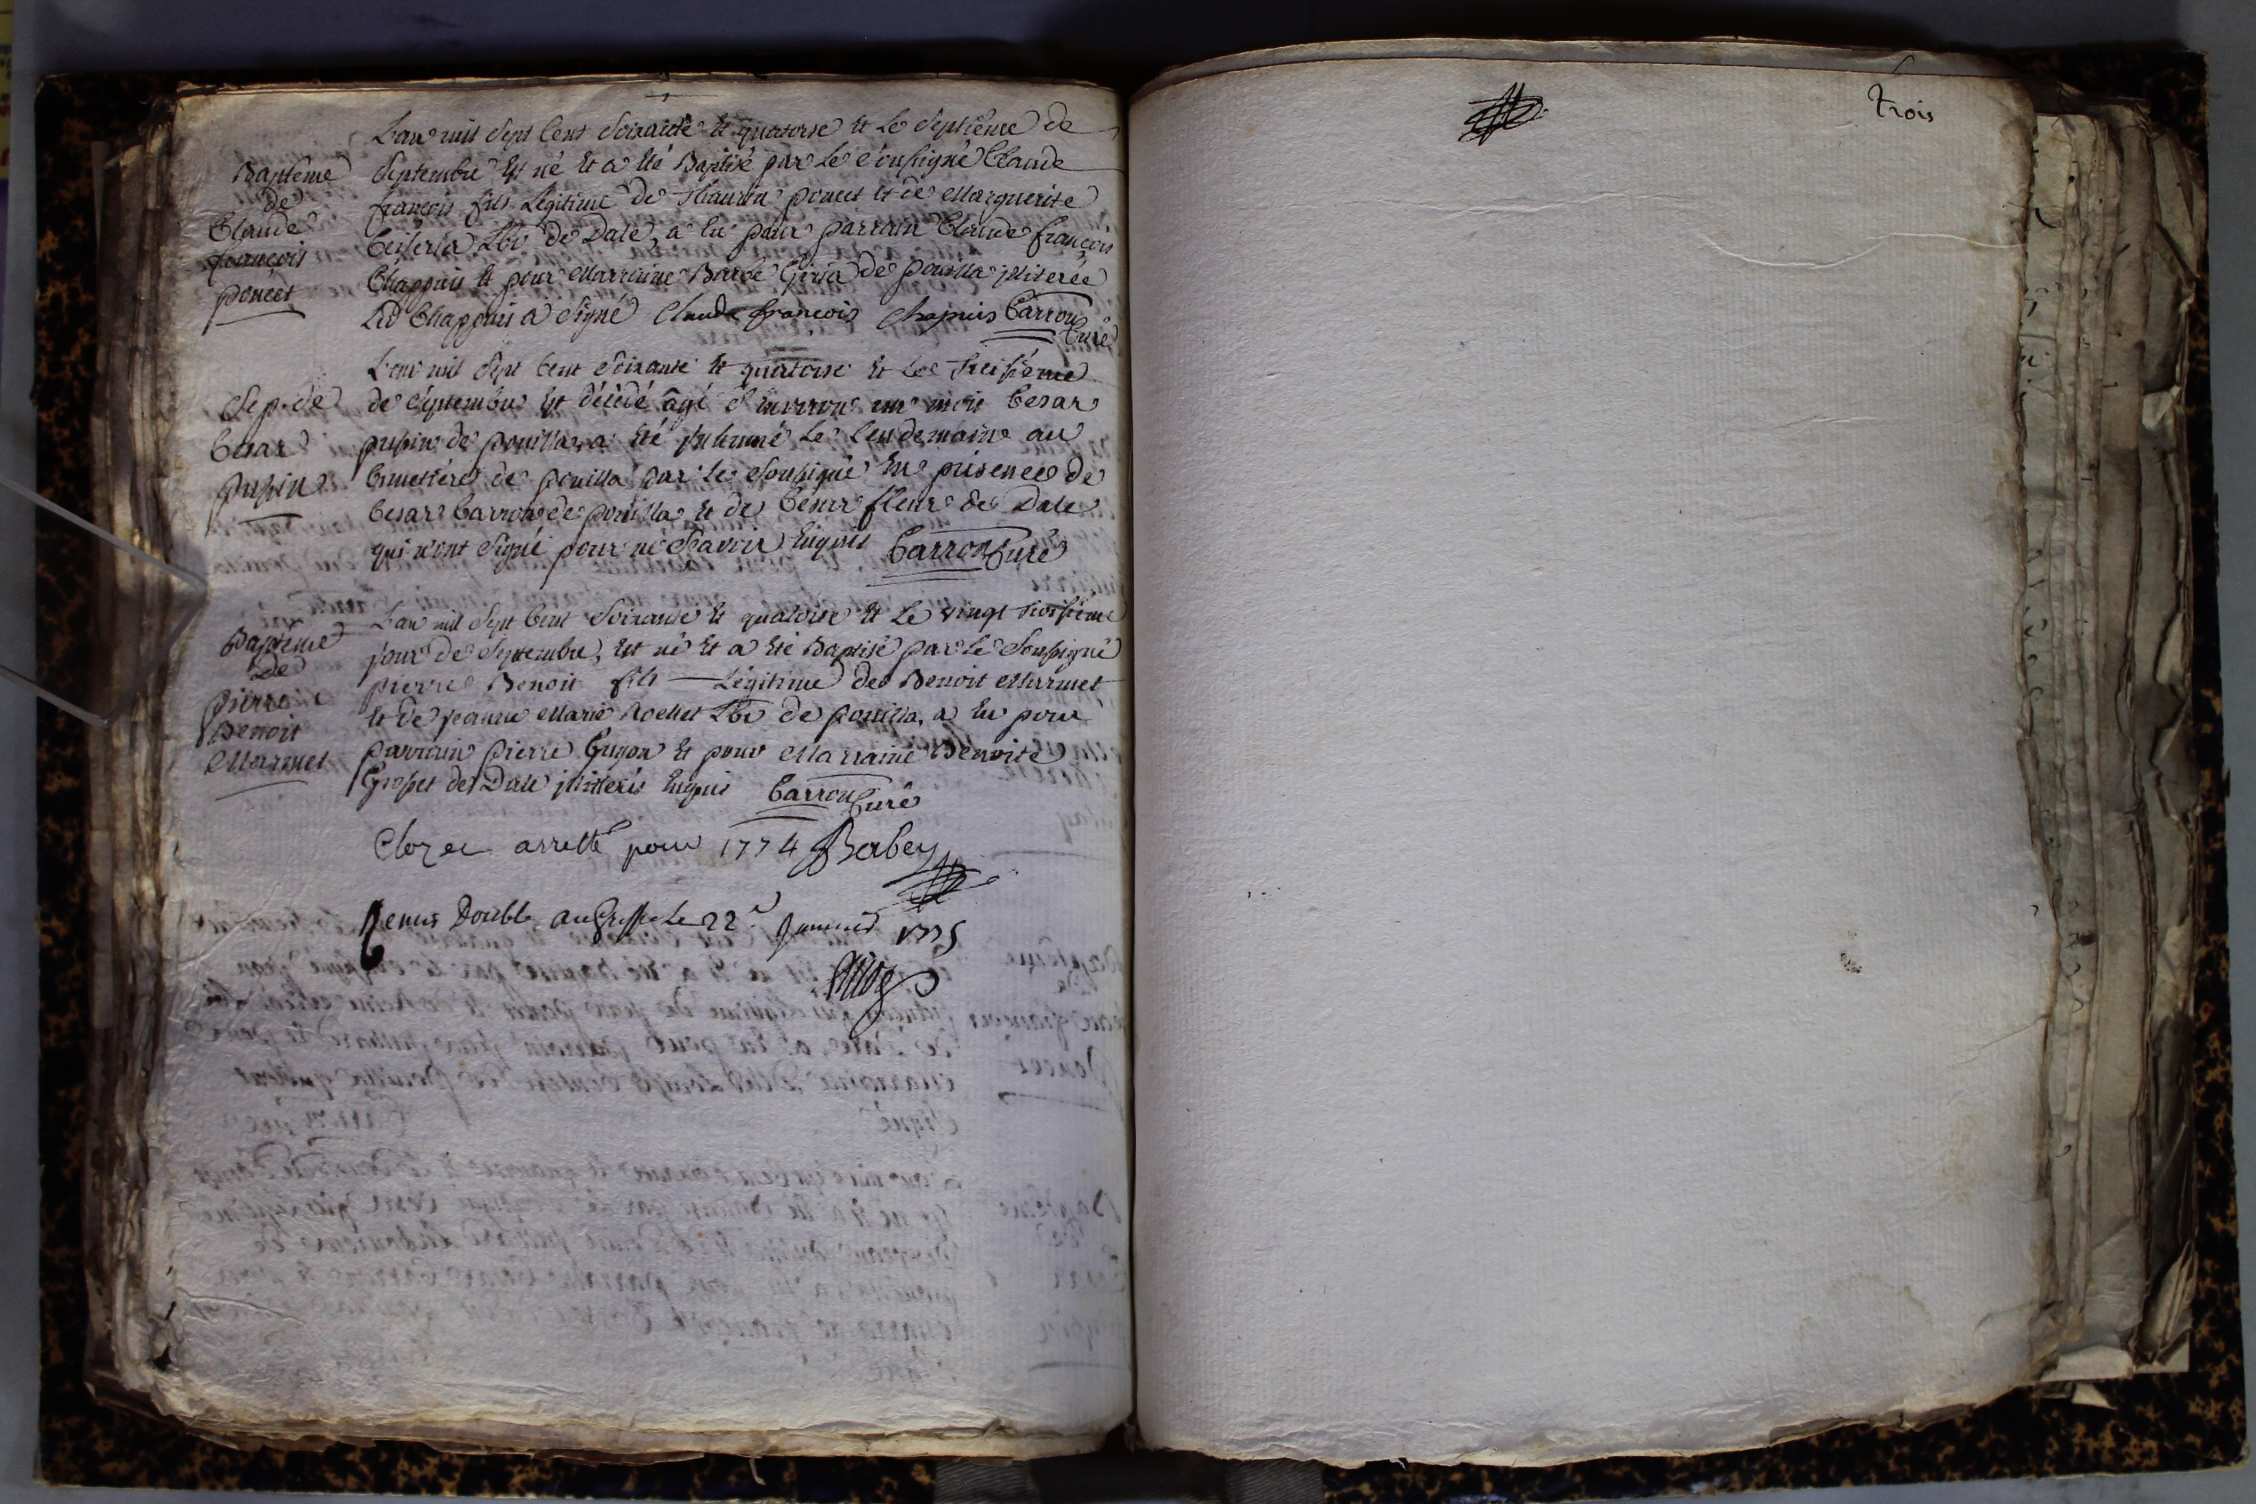 L'an mil Sept Cent Soixante Et quatorse Et Le Septième de
Baptême
de
Claude
françois
poncet
Septembre Est né Et a été Baptisé par Le soussigné Claude
françois fils Légitime de poncet Et de Marguerite
de Dale, a Eu pour parrain Claude françois
Chappuis Et pour Marraine Barbe de pouilla
Led Chappuis a Signé Claude francois Chapuis Carron
Curé
L'an mil Sept Cent Soixante Et quatorse Et Le treisième
Sep. de
Cesar
pupin
de Septembre Est décédé âgé d'Environ un mois Cesar
pupin de pouilla, a été inhumé Le Lendemain au
Cimettière de pouilla par Le Soussigné En présence de
Cesar Carron de pouilla Et de Cesar fleur de Dale
qui n'ont Signé pour ne Sçavoir Enquis Carron Curé
L'an mil Sept Cent Soixante Et quatorse Et Le vingt troisième
Baptême
de
pierre
Benoit
Marmet
jour de Septembre, Est né Et a été Baptisé par Le Soussigné
pierre Benoit fils Légitime de Benoit Marmet
Et de jeanne Marie Rollet de pouilla, a Eu pour
parrain pierre Guyon Et pour Marraine Benoite
Grospet de Dale illitterés Enquis Carron Curé
Cloz et arretté pour 1774 Babey
Remis Double au Greffe Le 22e Janvier 1775
trois